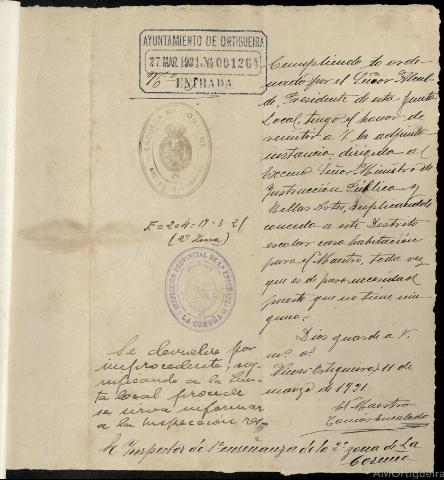 AYUNTAMIENTO DE ORTIGUEIRA
27 MAR. 1921 Nº 001261
ENTRADA
Cumpliendo lo orde-
nado por el Señor Alcal-
de, Presidente de esta Junta
Local, tengo el honor de
remitir a V. la adjunta
instancia dirigida al
Excmo Señor Ministro de
Instrucción Pública y
Bellas Artes, suplicándole
conceda a este Distrito
escolar casa habitación
para el Maestro, toda vez
que es de pura necesidad
puesto que no tiene nin-
guna.
Dios guarde a V.
m.s a.s
Nieves (Ortigueira) 11 de
marzo de 1921.
El Maestro
ESCUELA NACIONAL DE
E=204=17-3-21
(2ª Zona)
INSPECCIÓN PROVINCIAL DE 1ª ENSEÑANZA
LA CORUÑA
Se devuelve por
improcedente, sig-
nificando a la Jun-
ta local proceda
se sirva informar
a la Inspección
Sr. Inspector de 1ª enseñanza de la 2ª zona de La
Coruña
AMOrtigueira